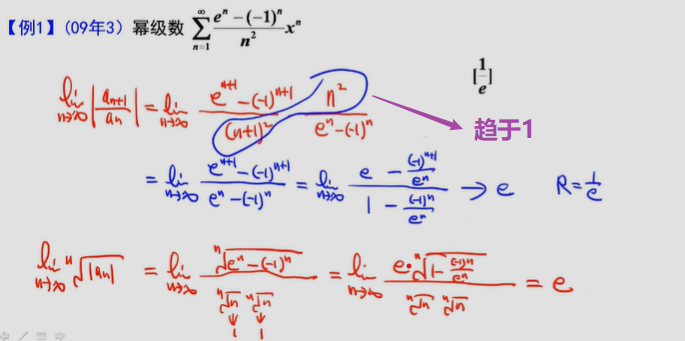 【例1】(09年3) 幂级数 $\sum_{n=1}^{\infty} \frac{e^n-(-1)^n}{n^2} x^n$
$[\frac{1}{e}]$
$\lim_{n\to\infty} \left|\frac{a_{n+1}}{a_n}\right| = \lim_{n\to\infty} \frac{e^{n+1}-(-1)^{n+1}}{(n+1)^2} \frac{n^2}{e^n-(-1)^n}$
趋于1
$= \lim_{n\to\infty} \frac{e^{n+1}-(-1)^{n+1}}{e^n-(-1)^n} = \lim_{n\to\infty} \frac{e-\frac{(-1)^{n+1}}{e^n}}{1-\frac{(-1)^n}{e^n}} \to e \quad R=\frac{1}{e}$
$\lim_{n\to\infty} \sqrt[n]{|a_n|} = \lim_{n\to\infty} \frac{\sqrt[n]{e^n-(-1)^n}}{\sqrt[n]{n} \sqrt[n]{n}} = \lim_{n\to\infty} \frac{e \cdot \sqrt[n]{1-\frac{(-1)^n}{e^n}}}{\sqrt[n]{n} \sqrt[n]{n}} = e$
↓ ↓
1 1